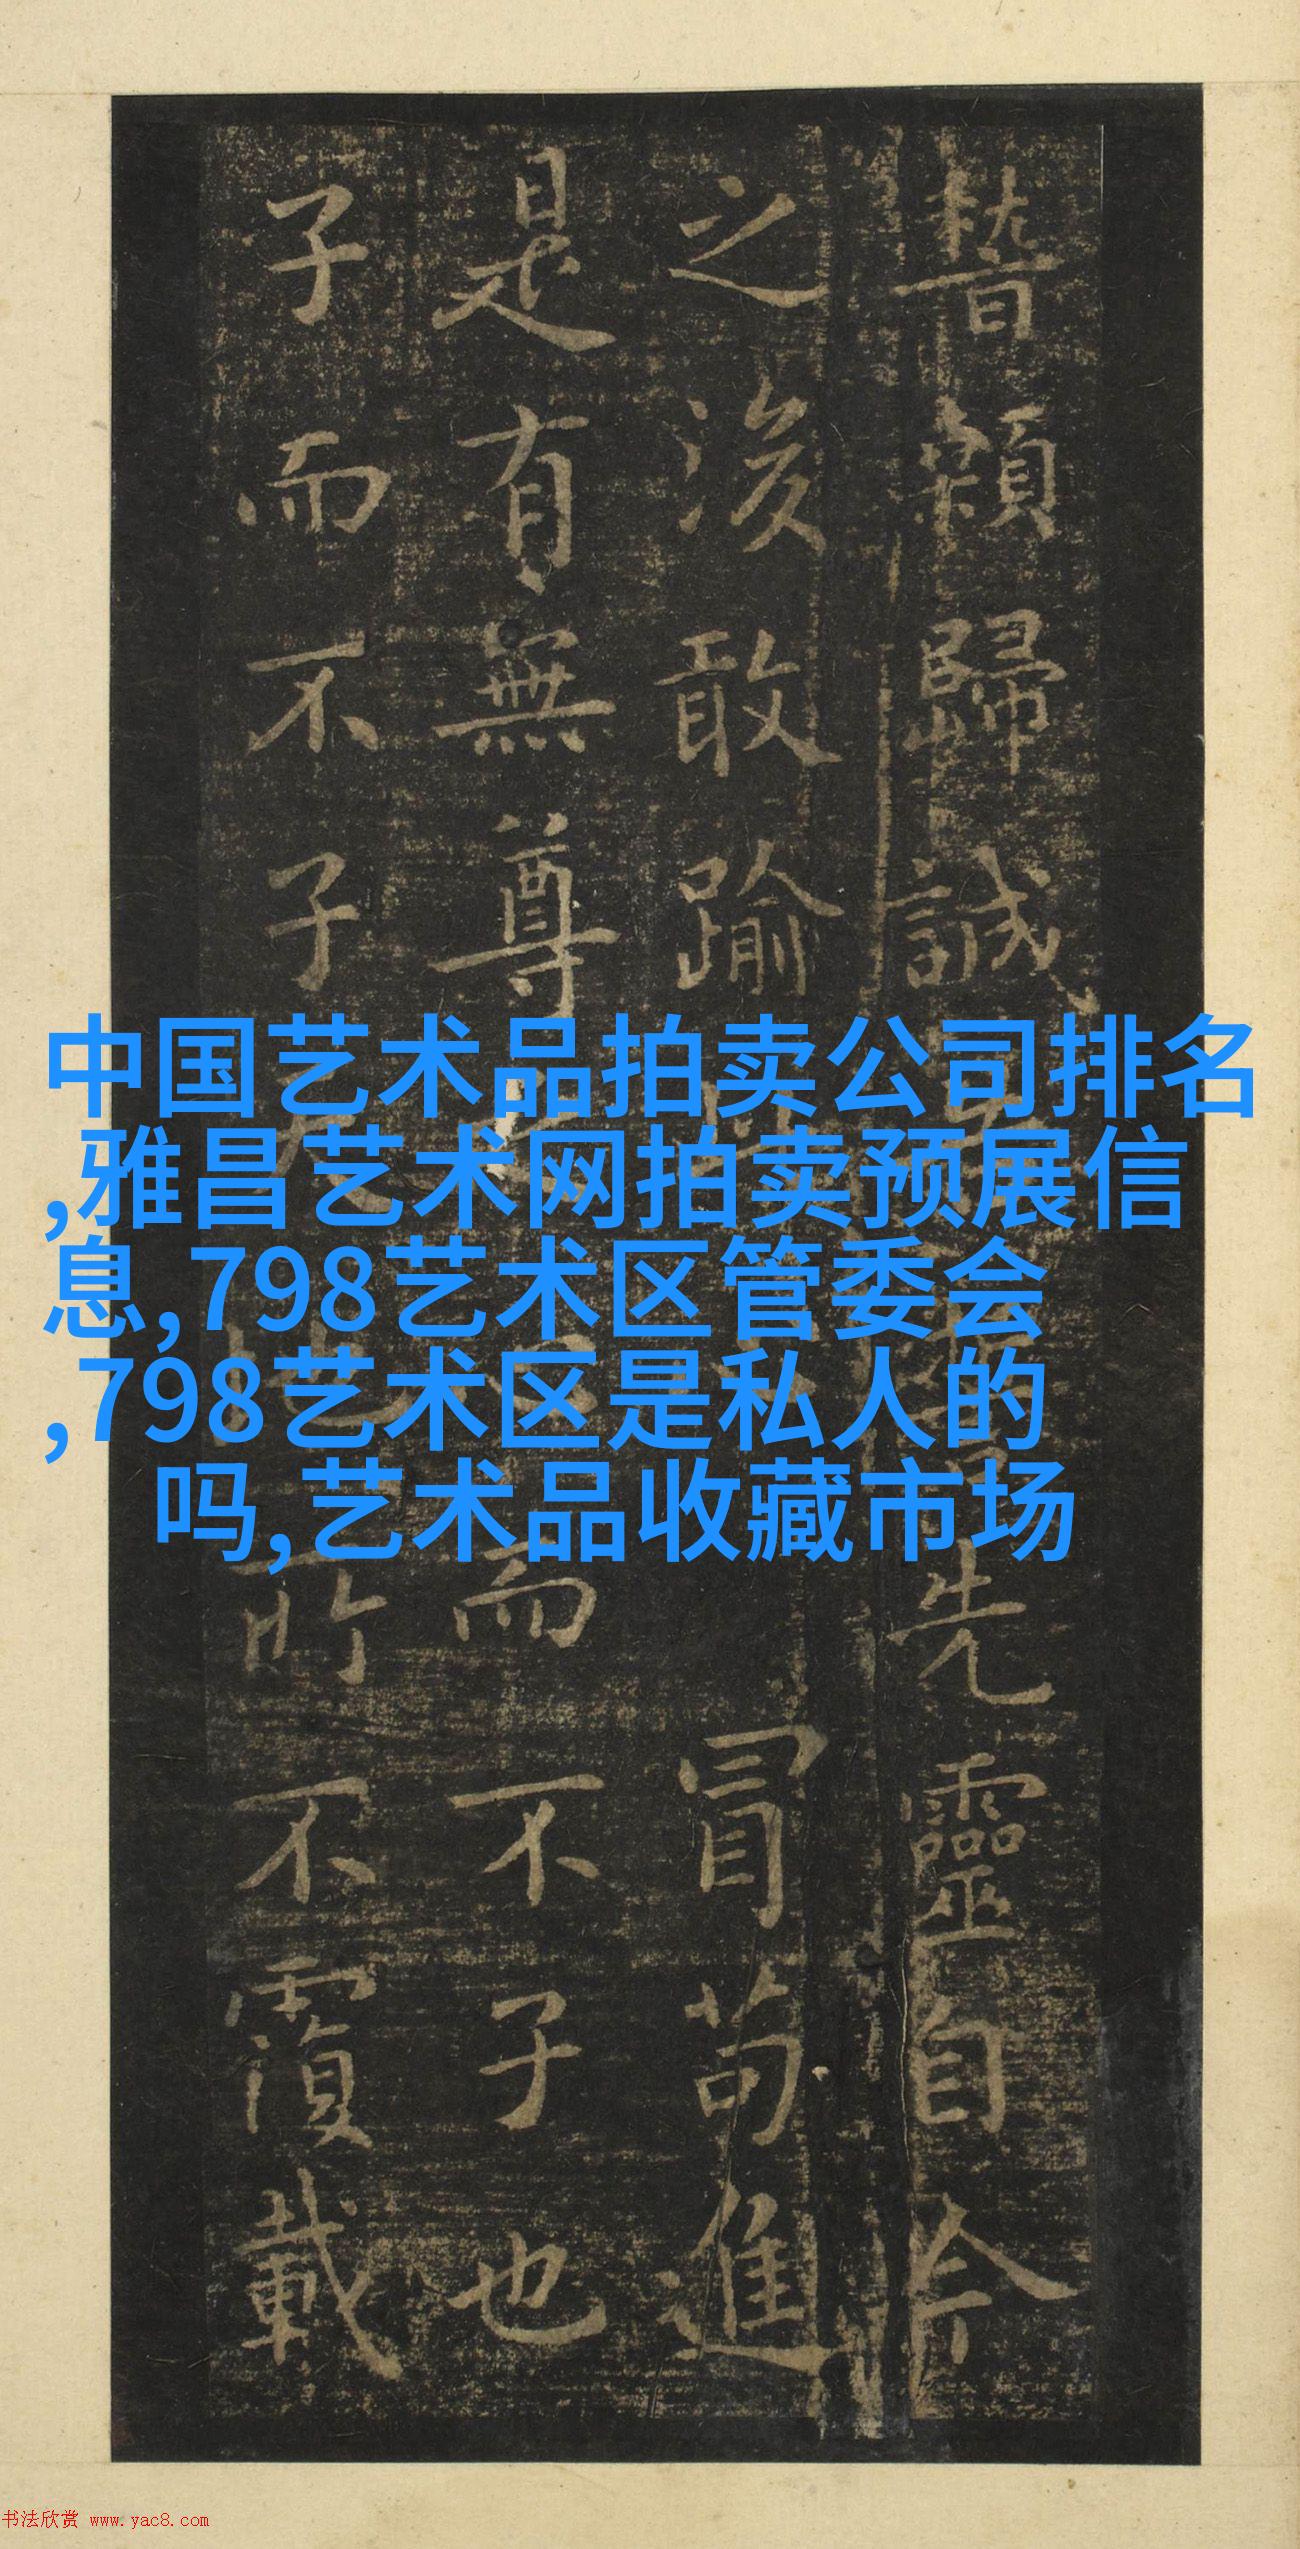 稽顙歸誠先靈自今
之後敢踰冒苟進
是有無尊而不子也
子而不子所不覆載
中国艺术品拍卖公司排名
,雅昌艺术网拍卖预展信
息,798艺术区管委会
,798艺术区是私人的
吗,艺术品收藏市场
书法欣赏 www.yac8.com